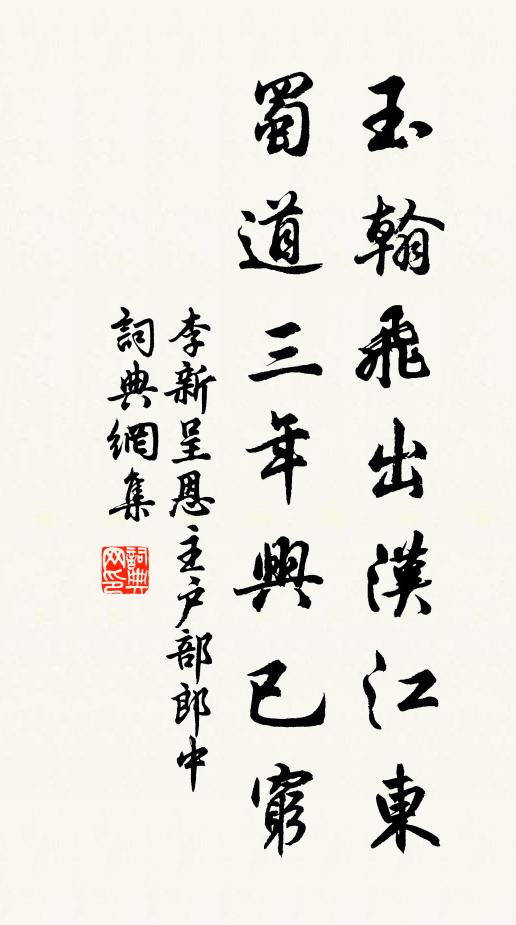 玉翰飛出漢江東
蜀道三年興已窮
李新呈恩主戶部郎中
詞典網集
詞典网印